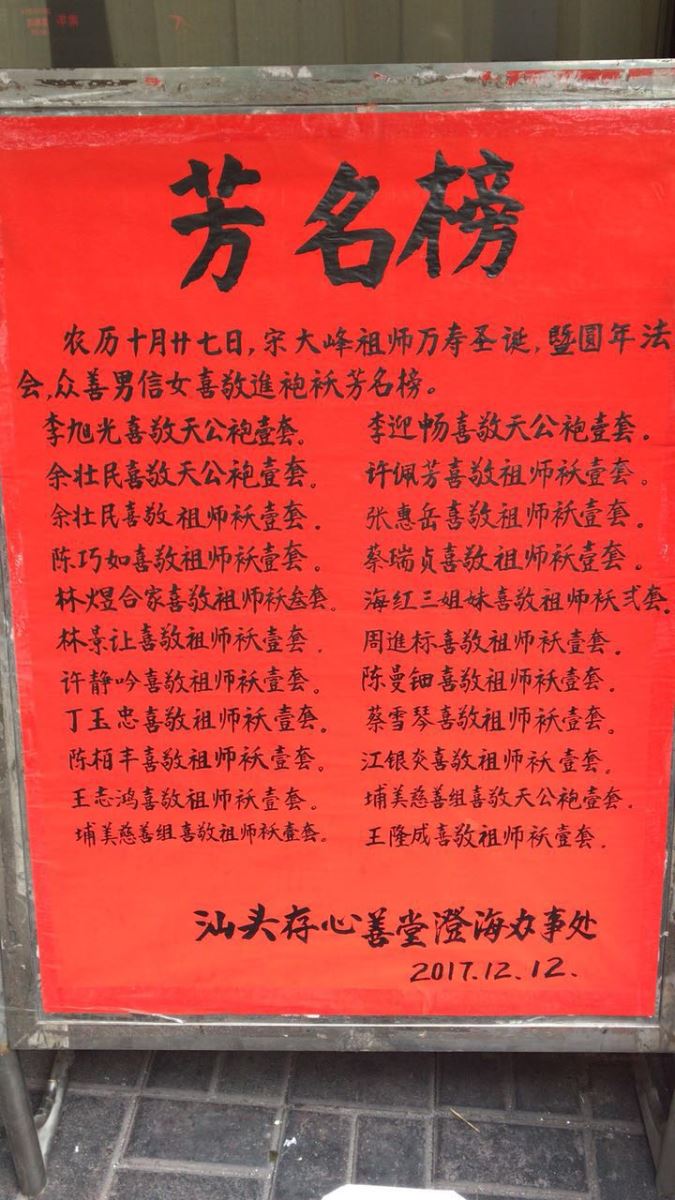 芳名榜
农历十月廿七日,宋大峰祖师万寿圣诞,暨圆年法
会,众善男信女喜敬進袍袄芳名榜。
李旭光喜敬天公袍壹套。 李迎畅喜敬天公袍壹套。
余壮民喜敬天公袍壹套。 许佩芳喜敬祖师袄壹套。
余壮民喜敬祖师袄壹套。 张惠岳喜敬祖师袄壹套。
陈巧如喜敬祖师袄壹套。 蔡瑞贞喜敬祖师袄壹套。
林煜合家喜敬祖师袄叁套。 海红三姐妹喜敬祖师袄弍套。
林景让喜敬祖师袄壹套。 周進标喜敬祖师袄壹套。
许静吟喜敬祖师袄壹套。 陈曼钿喜敬祖师袄壹套。
丁玉忠喜敬祖师袄壹套。 蔡雪琴喜敬祖师袄壹套。
陈栢丰喜敬祖师袄壹套。 江银炎喜敬祖师袄壹套。
王志鸿喜敬祖师袄壹套。 埔美慈善组喜敬天公袍壹套。
埔美慈善组喜敬祖师袄壹套。 王隆成喜敬祖师袄壹套。
汕头存心善堂澄海办事处
2017.12.12.